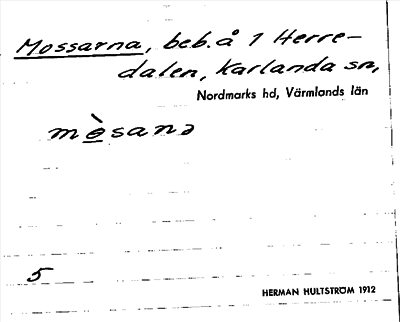 Mossarna, beb. å 1 Herre-
dalen, Karlanda sn,
Nordmarks hd, Värmlands län
mè̲sanə
5
HERMAN HULTSTRÖM 1912